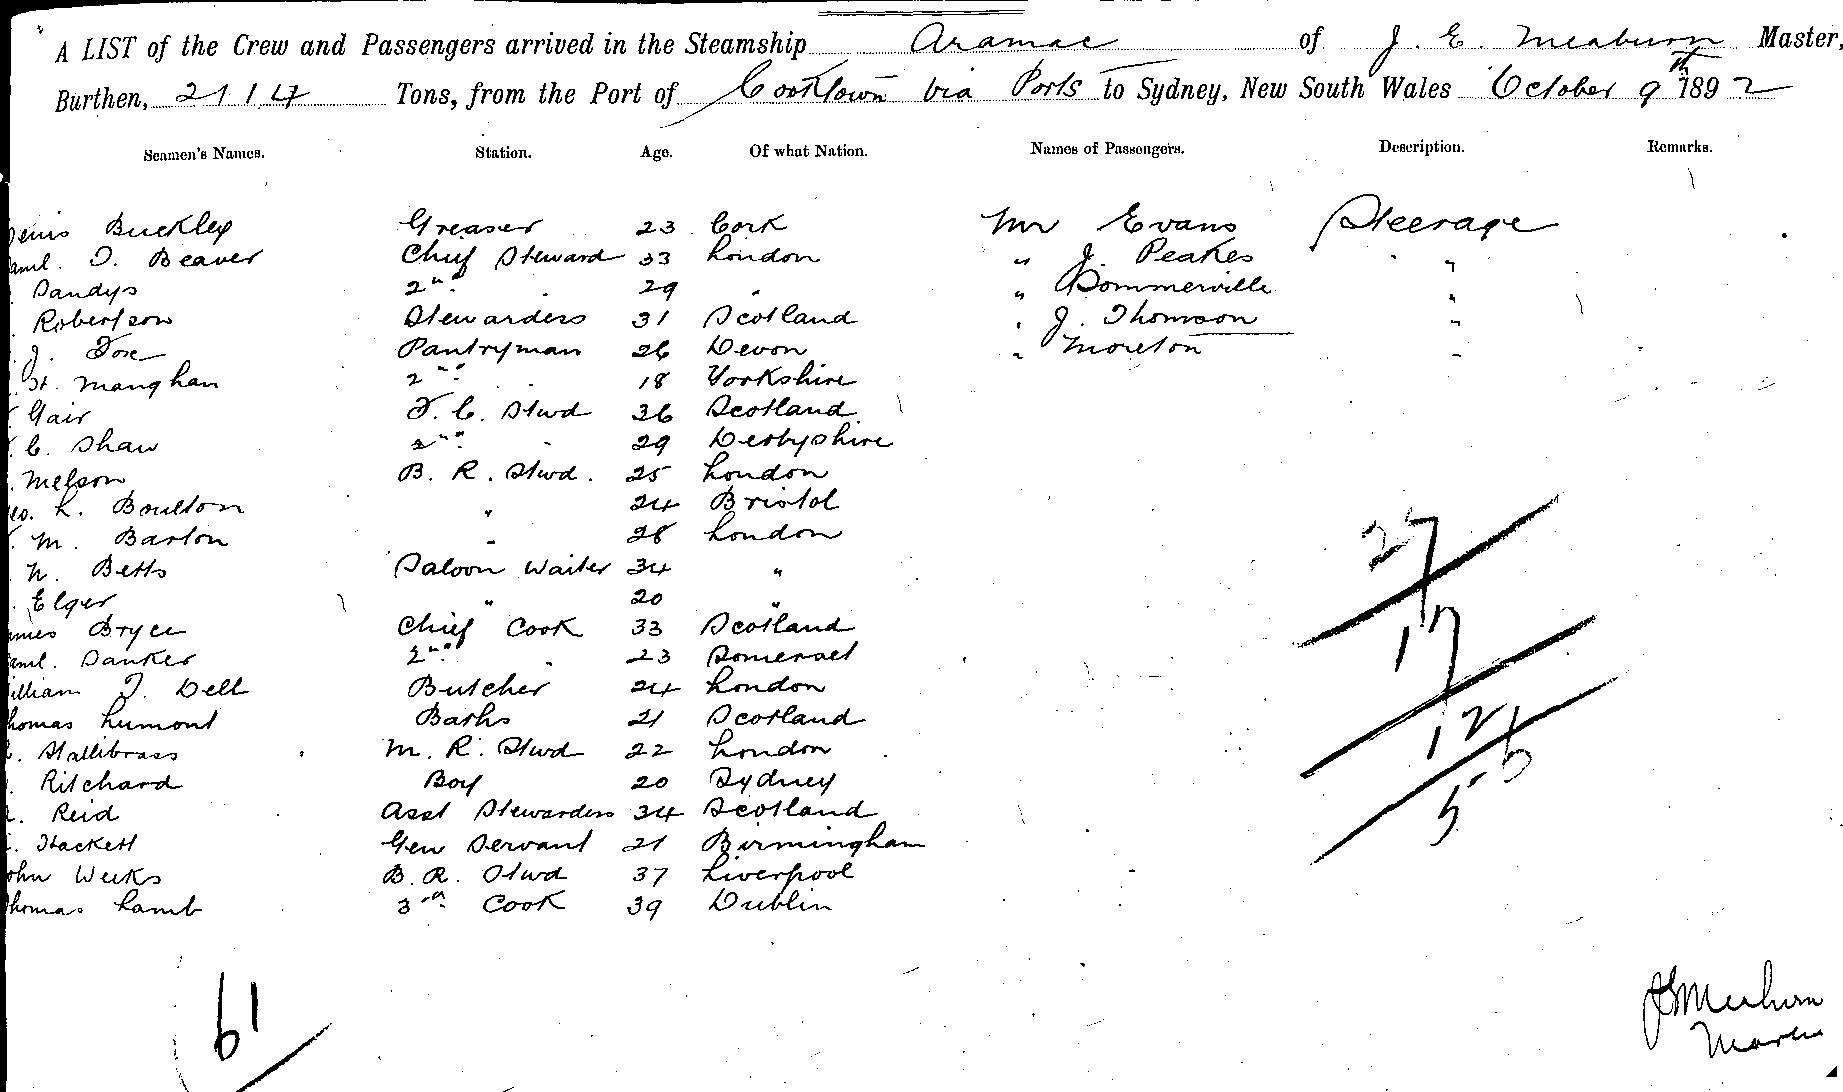 A LIST of the Crew and Passengers arrived in the Steamship Aramac of J. E. Meaburn Master,
Burthen, 2114 Tons, from the Port of Cooktown via Ports to Sydney, New South Wales October 9th 1892
Seamen's Names. Station. Age. Of what Nation. Names of Passengers. Description. Remarks.
enis Buckley Greaser 23 Cork Mr Evans Steerage
aml. F. Beaver Chief Steward 33 London " J. Peakes "
Sandys 2nd " 29 " " Sommerville "
Robertson Stewardess 31 Scotland " J. Thomson "
J. Fox Pantryman 26 Devon " Moreton "
H. Manghan 2nd " 18 Yorkshire
Gair F. C. Stwd 36 Scotland
C. Shaw 2nd " 29 Derbyshire
Melson B. R. Stwd. 25 London
eo. L. Boulton " 24 Bristol
M. Barton " 28 London
N. Betts Saloon Waiter 34 "
Elger " 20 "
ames Bryce Chief Cook 33 Scotland
aml. Danker 2nd " 23 Somerset
illiam F. Dell Butcher 24 London
homas Lumont Baths 21 Scotland
Stallibrass M. R. Stwd 22 London
Ritchard Boy 20 Sydney
Reid Asst Stewardess 34 Scotland
Hackett Gen Servant 21 Birmingham
ohn Weeks B. R. Stwd 37 Liverpool
homas Lamb 3rd Cook 39 Dublin
27
17
12
5
61
J E Meaburn
Master